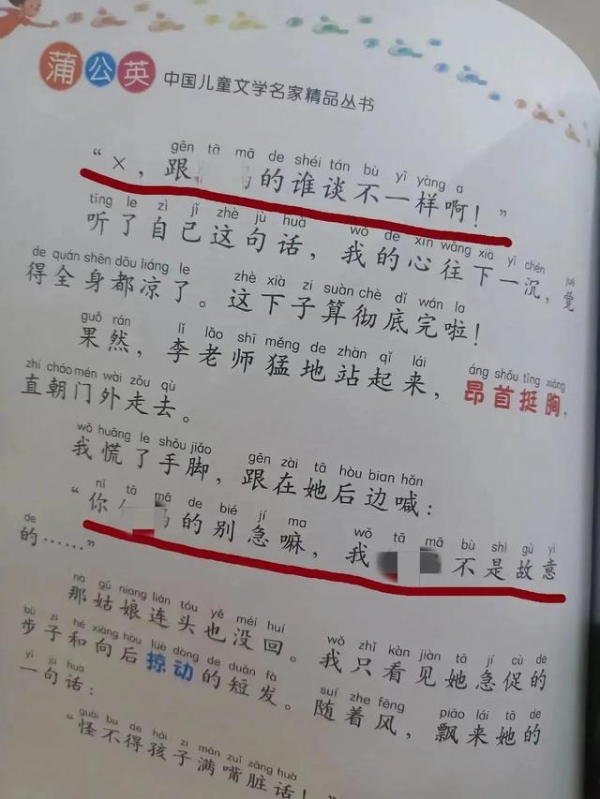 蒲公英 中国儿童文学名家精品丛书
gēn tā mā de shéi tán bù yī yàng a
“×，跟 的谁谈不一样啊！”
tīng le zì jǐ zhè jù huà wǒ de xīn wǎng xià yī chén
听了自己这句话，我的心往下一沉，觉
de quán shēn dōu liáng le zhè xià zi suàn chè dǐ wán la
得全身都凉了。这下子算彻底完啦！
guǒ rán lǐ lǎo shī měng de zhàn qǐ lái áng shǒu tǐng xiōng
果然，李老师猛地站起来，昂首挺胸，
zhí cháo mén wài zǒu qù
直朝门外走去。
wǒ huāng le shǒu jiǎo gēn zài tā hòu bian hǎn
我慌了手脚，跟在她后边喊：
nǐ tā mā de bié jí ma wǒ tā mā bù shì gù yì
“你 的别急嘛，我 不是故意
de
的……”
nà gū niang lián tóu yě méi huí wǒ zhǐ kàn jiàn tā jí cù de
那姑娘连头也没回。我只看见她急促的
bù zi hé xiàng hòu lüè dòng de duǎn fà suí zhe fēng piāo lái tā de
步子和向后掠动的短发。随着风，飘来她的
yī jù huà
一句话：
guài bu de hái zi mǎn zuǐ zāng huà
“怪不得孩子满嘴脏话！”